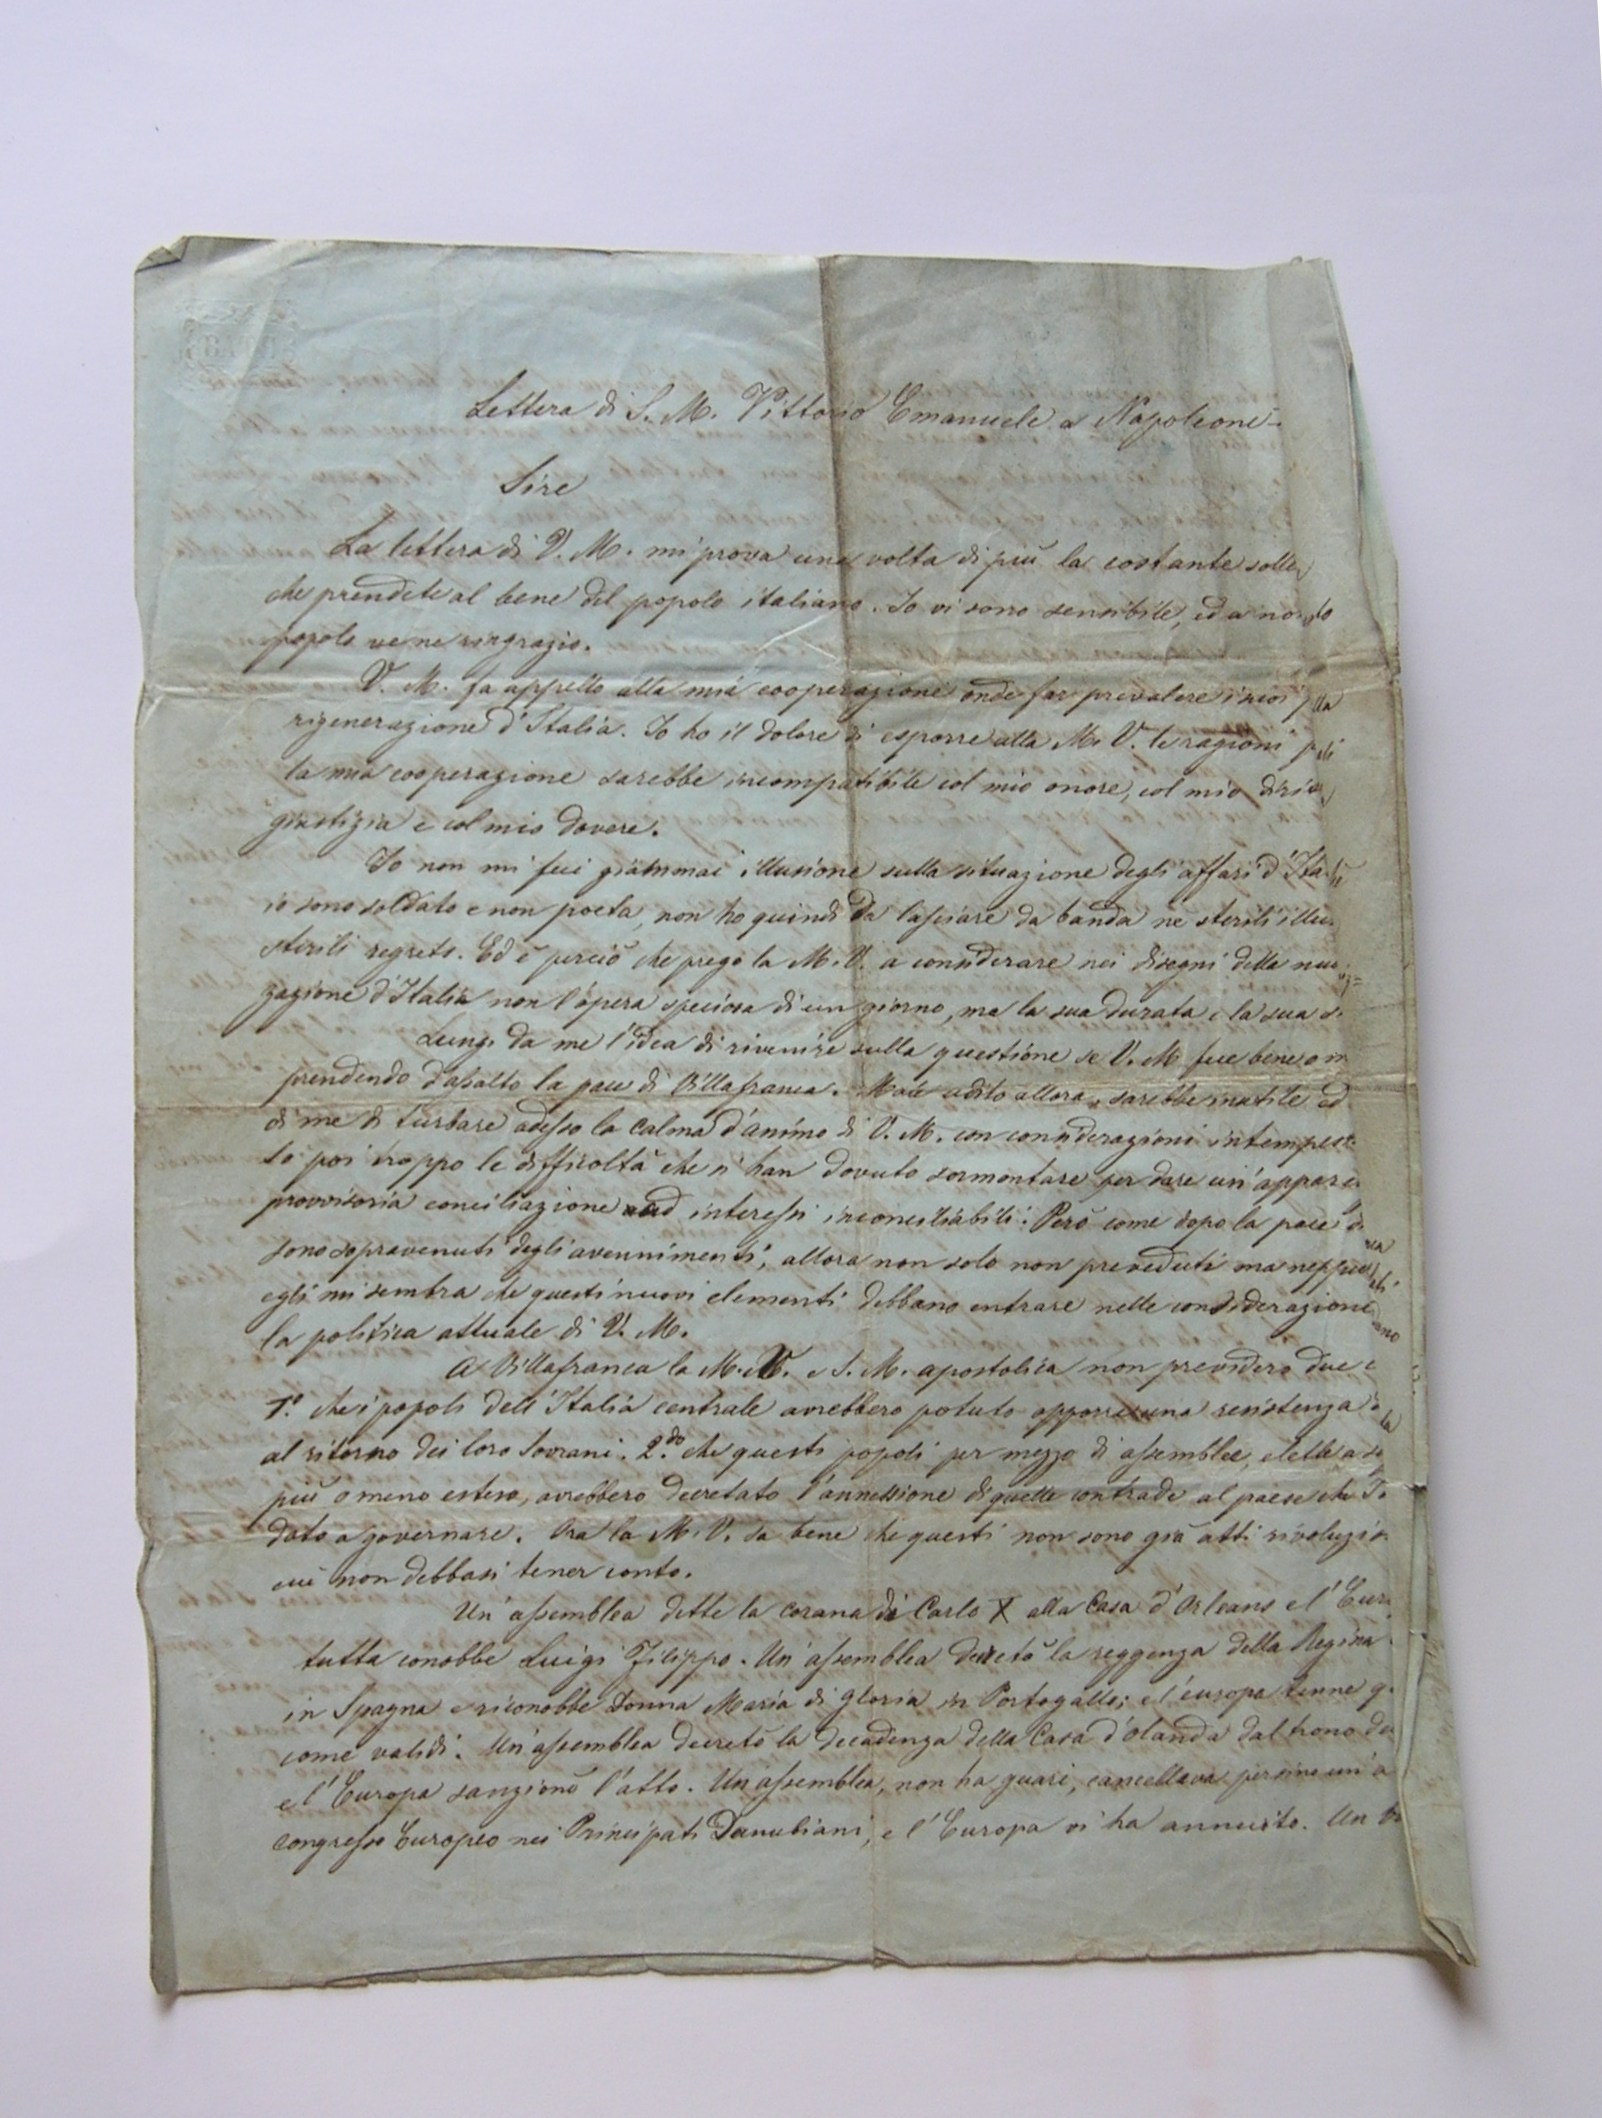 Lettera di S. M. Vittorio Emanuele a Napoleone.
Sire
La lettera di V. M. mi prova una volta di più la costante solle
che prendete al bene del popolo italiano. Io vi sono sensibile, ed a no
popolo ve ne ringrazio.
V. M. fa appello alla mia cooperazione onde far prevalere i suoi
rigenerazione d'Italia. Io ho il dolore di esporre alla M. V. le ragioni
la mia cooperazione sarebbe incompatibile col mio onore, col mio
giustizia e col mio dovere.
Io non mi feci giammai illusione sulla situazione degli affari d'Ita
io sono soldato e non poeta, non ho quindi da lasciare da banda nè sterili illu
sterili regreti. Ed è perciò che prego la M. V. a considerare nei disegni della
zazione d'Italia non l'opera speciosa di un giorno, ma la sua durata e la sua
Lungi da me l'idea di rivenire sulla questione se V. M fece bene o m
prendendo d'assalto la pace di Villafranca. Non udito allora, sarebbe inutile ed
di me di turbare adesso la calma d'animo di V. M. con considerazioni intempest
So poi troppo le difficoltà che si han dovuto sormontare per dare un'appare
provvisoria conciliazione ad interessi inconciliabili. Però come dopo la pace
sono sopravenuti degli avennimenti, allora non solo non preveduti ma neppu
egli mi sembra che questi nuovi elementi debbano entrare nelle considerazione
la politica attuale di V. M.
A Villafranca la M. V. e S. M. apostolica non previdero due
1.° che i popoli dell'Italia centrale avrebbero potuto opporre una resistenza
al ritorno dei loro Sovrani. 2.do che questi popoli per mezzo di assemblee, elette a
più o meno esteso, avrebbero decretato l'annessione di quelle contrade al paese che
dato a governare. Ora la M. V. sa bene che questi non sono già atti rivoluzio
cui non debbasi tener conto.
Un'assemblea dette la corana di Carlo X alla Casa d'Orleans e l'Eur
tutta conobbe Luigi Filippo. Un'assemblea decretò la reggenza della Regina
in Spagna e riconobbe Donna Maria di Gloria in Portogallo; e l'europa tenne q
come validi. Un'assemblea decretò la decadenza della Casa d'Olanda dal trono de
e l'Europa sanzionò l'atto. Un'assemblea, non ha guari, cancellava persino un'a
congresso Europeo nei Principati Danubiani, e l'Europa vi ha annuito. Un